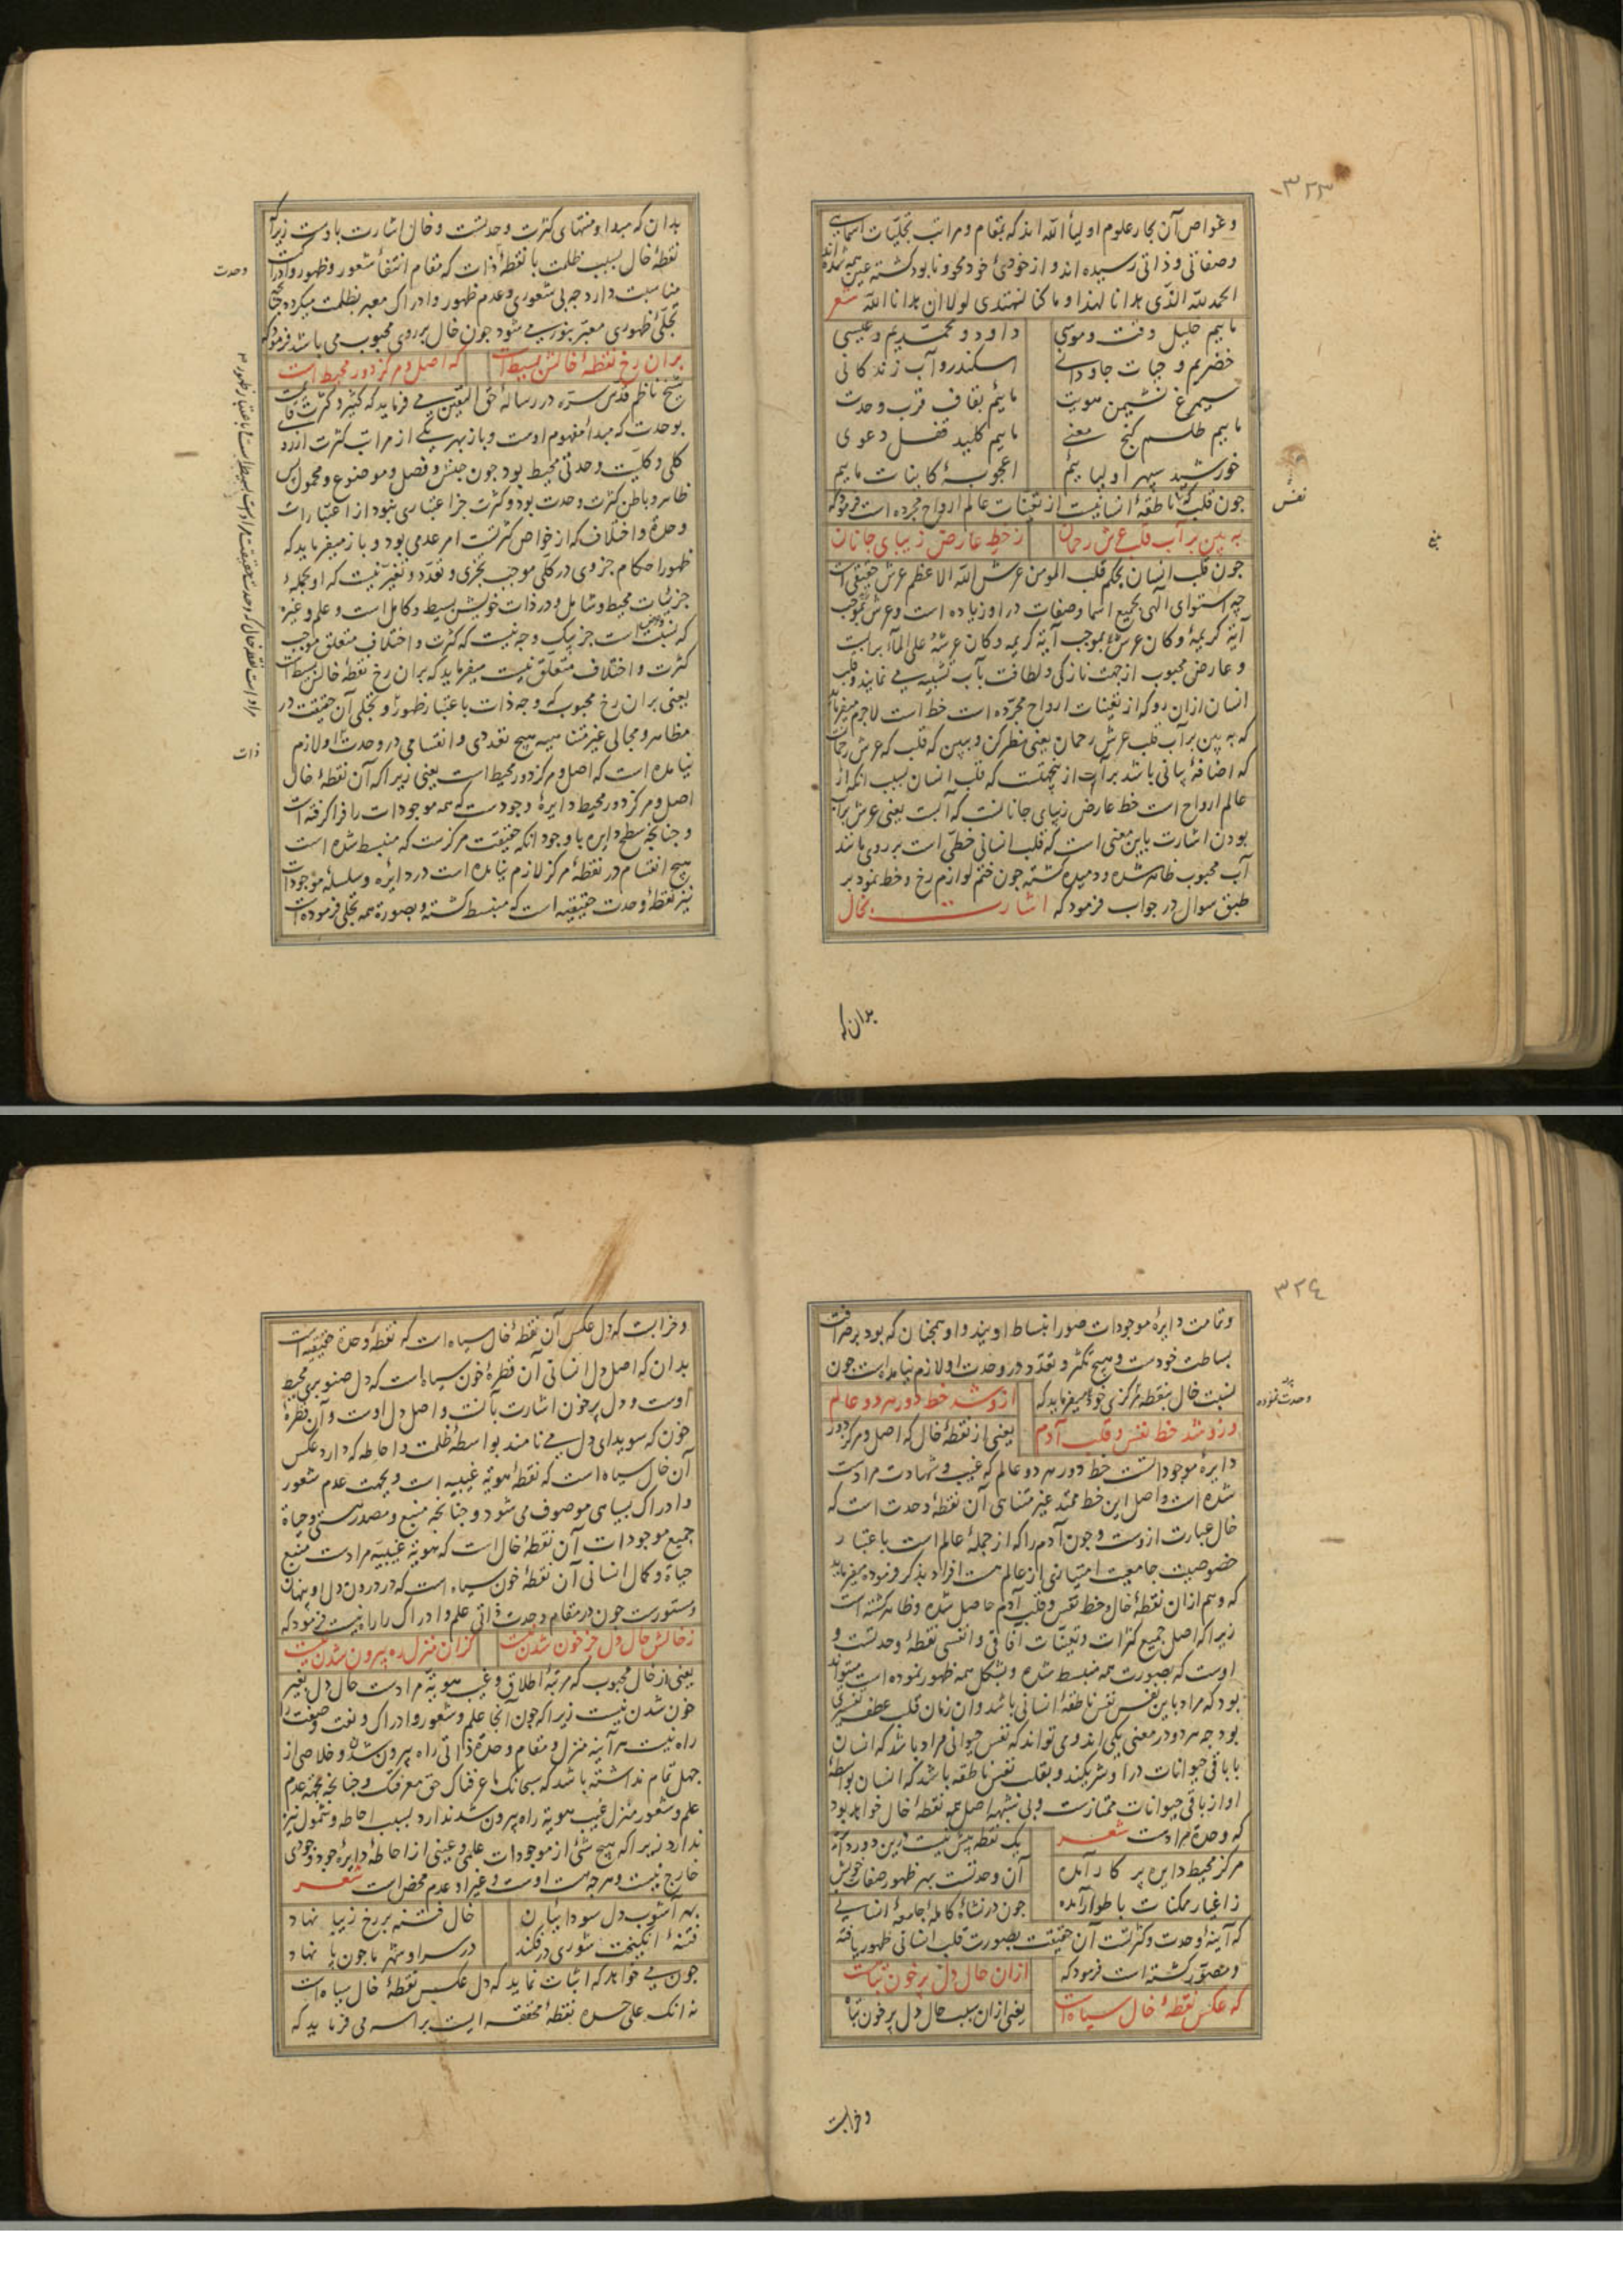 ۳۲۳
و غواص آن بحار علوم اولیاء الله اند که بمقام و مراتب تجلیات اسمایی
و صفاتی و ذاتی رسیده اند و از خودئ خود محو و نابود کشته عین همه شده اند
الحمد لله الذی هدانا لهذا و ما کنا لنهتدی لولا ان هدانا الله شعر
ماییم خلیل وقت و موسی داود و محمدیم و عیسی
خضریم و حیات جاودانی اسکندر و آب زندکانی
سیمرغ نشیمن هویت ماییم بقاف قرب وحدت
ماییم طلسم کنج معنی ماییم کلید قفل دعوی
خورشید سپهر اولیاییم اعجوبهٔ کاینات ماییم
چون قلب که ناطقهٔ انسانیست از تعینات عالم ارواح مجرده است فرمود که
به بین بر آب قلب عرش رحمان ز خط عارض زیبای جانان
چون قلب انسان بحکم قلب المومن عرش الله الاعظم عرش حقیقی است
چه استوای الهی بجمیع اسما و صفات در او زیاده است و عرش بموجب
آیهٔ کریمهٔ و کان عرشه بموجب آیهٔ کریمه و کان عرشه علی المآء بر آبست
و عارض محبوب از جهت نازکی و لطافت بآب تشبیه می نمایند و قلب
انسان ازان رو که از تعینات ارواح مجرده است خط است لاجرم میفرماید
که به بین بر آب قلب عرش رحمان یعنی نظر کن و ببین که قلب که عرش رحمانست
که اضافهٔ بیانی باشد بر آبست ازینجهتست که قلب انسان بسبب آنکه از
عالم ارواح است خط عارض زیبای جانانست که آبست یعنی عرش بر آب
بودن اشارت باین معنی است که قلب انسانی خطی است بر روی مانند
آب محبوب ظاهر شده و دمیده کشته چون ختم لوازم رخ و خط نمود بر
طبق سوال در جواب فرمود که اشارت بخال
بدان که
نفس
بدان که مبدا و منتهای کثرت وحدتست و خال اشارت باوست زیرا که
نقطهٔ خال بسبب ظلمت با نقطهٔ ذات که مقام انتفاء شعور و ظهور و ادراکست
مناسبت دارد چه بی شعوری و عدم ظهور و ادراک معبر بظلمت میکردد چنانچه
تجلی ظهوری معبر بنور می شود چون خال بر روی محبوب می باشد فرمود که
بران رخ نقطهٔ خالش بسیط است که اصل و مرکز دور محیط است
شیخ ناظم قدس سره در رسالهٔ حق الیقین می فرماید که کثیر و کثرت قائمست
بوحدت که مبدا مفهوم اوست و باز بهر یکی از مراتب کثرت از رد
کلی و کلیت وحدتی محیط بود چون جنس و فصل و موضوع و محمول پس
ظاهر و باطن کثرت وحدت بود و کثرت جز اعتباری نبود از اعتبارات
وحدة و اختلاف که از خواص کثرتست امر عدمی بود و باز میفرماید که
ظهور احکام جزوی در کلی موجب تجزی و تعدد و تغیر نیست که او بجملهٔ
جزئیات محیط و شامل و در ذات خویش بسیط و کامل است و علم و غیره
که نسبت است جز یک وجه نیست که کثرت و اختلاف متعلق موجب
کثرت و اختلاف متعلق نیست میفرماید که بران رخ نقطهٔ خالش بسیط است
یعنی بران رخ محبوب که وجه ذات باعتبار ظهور و تجلی آن حقیقت در
مظاهر و مجالی غیر متناهیه هیچ تعددی و انقسامی در وحدت او لازم
نیامده است که اصل و مرکز دور محیط است یعنی زیرا که آن نقطهٔ خال
اصل و مرکز دور محیط دایرهٔ وجودست که همه موجودات را فرا کرفته است
و چنانچه سطح دایره با وجود آنکه حقیقت مرکزست که منبسط شده است
هیچ انقسام در نقطهٔ مرکز لازم نیامده است در دایره و سلسلهٔ موجودات
نیز نقطهٔ وحدت حقیقیه است که منبسط کشته و بصورة همه تجلی فرموده است
وحدت
مراد است نقطهٔ خال که وحدت حقیقت مراد است بسیط است باعتبار ظهور
ذات
۳۲۴
و تمامت دایرهٔ موجودات صور انبساط اویند و او همچنان که بود بر صرافت
بساطت خودست و هیچ تکثر و تعدد در وحدت او لازم نیامده است چون
نسبت خال بنقطهٔ مرکزی خود میفرماید که ازو شد خط دور هر دو عالم
وزو شد خط نفس و قلب آدم یعنی از نقطهٔ خال که اصل و مرکز دور
دایرهٔ موجوداتست خط دور هر دو عالم که غیب و شهادت مرادست
شده است و اصل این خط ممتد غیر متناهی آن نقطهٔ وحدت است که
خال عبارت ازوست و چون آدم را که از جملهٔ عالم است باعتبار
خصوصیت جامعیت امتیازی از عالم هست افراد بذکر فرموده میفرماید
که و هم ازان نقطهٔ خال خط نفس و قلب آدم حاصل شده و ظاهر کشته است
زیرا که اصل جمیع کثرات و تعینات آفاقی و انفسی نقطهٔ وحدتست و
اوست که بصورت همه منبسط شده و بشکل همه ظهور نموده است میتواند
بود که مراد باین نفس نفس ناطقهٔ انسانی باشد و آن زمان قلب عطف تفسیری
بود چه هر دو در معنی یکی اند و می تواند که نفس حیوانی مراد باشد که انسان
با باقی حیوانات در او شریکند و بقلب نفس ناطقه باشد که انسان بواسطهٔ
او از باقی حیوانات ممتازست و بی شبهه اصل همه نقطهٔ خال خواهد بود
که وحدة مرادست شعر یک نقطه بیش نیست درین دور دایره
مرکز محیط دایره پر کار آمده آن وحدتست بهر ظهور صفات خویش
ز اغیار ممکنات باطوار آمده چون در نشاة کاملهٔ جامعهٔ انسانی
که آینهٔ وحدت و کثرتست آن حقیقت بصورت قلب انسانی ظهور یافته
و متصور کشته است فرمود که ازان حال دل پر خون تباهست
که عکس نقطهٔ خال سیاه است یعنی ازان سبب حال دل پر خون تباه
و خرابست
وحدت نموده
و خرابست که دل عکس آن نقطهٔ خال سیاه است که نقطهٔ وحدة حقیقیه است
بدان که اصل دل انسانی آن قطرهٔ خون سیاه است که دل صنوبری محیط
اوست و دل پر خون اشارت بآنست و اصل دل اوست و آن قطرهٔ
خون که سویدای دل می نامند بواسطهٔ ظلمت و احاطه که دارد عکس
آن خال سیاه است که نقطهٔ هویة غیبیه است و بجهت عدم شعور
و ادراک بسیاهی موصوف می شود و چنانچه منبع و مصدر هستی و حیاة
جمیع موجودات آن نقطهٔ خال است که هویة غیبیه مرادست منبع
حیاة و کمال انسانی آن نقطهٔ خون سیاه است که در درون دل او پنهان
و مستورست چون در مقام وحدت ذاتی علم و ادراک را راه نیست فرمود که
ز خالش حال دل جز خون شدن نیست کزان منزل ره بیرون شدن نیست
یعنی از خال محبوب که مرتبهٔ اطلاق و غیب هویة مرادست حال دل بغیر
خون شدن نیست زیرا که چون آنجا علم و شعور و ادراک و نعت و صفت را
راه نیست هر آینه منزل و مقام وحدة ذاتی راه بیرون شدن و خلاصی از
جهل تمام نداشته باشد که سبحانک ما عرفناک حق معرفتک و چنانچه بجهة عدم
علم و شعور منزل غیب هویة راه بیرون شد ندارد بسبب احاطه و شمول نیز
ندارد زیرا که هیچ شئ از موجودات علمی و عینی از احاطهٔ دایرهٔ وجودی
خارج نیست و هر چه هست اوست و غیر او عدم محض است شعر
بهر آشوب دل سوداییان خال فتنه بر رخ زیبا نهاد
فتنهٔ انکیخت شوری در فکند در سر او شهر ما چون پا نهاد
چون می خواهد که اثبات نماید که دل عکس نقطهٔ خال سیاه است
نه انک علی حده نقطهٔ محققه ایست براسه می فرماید که